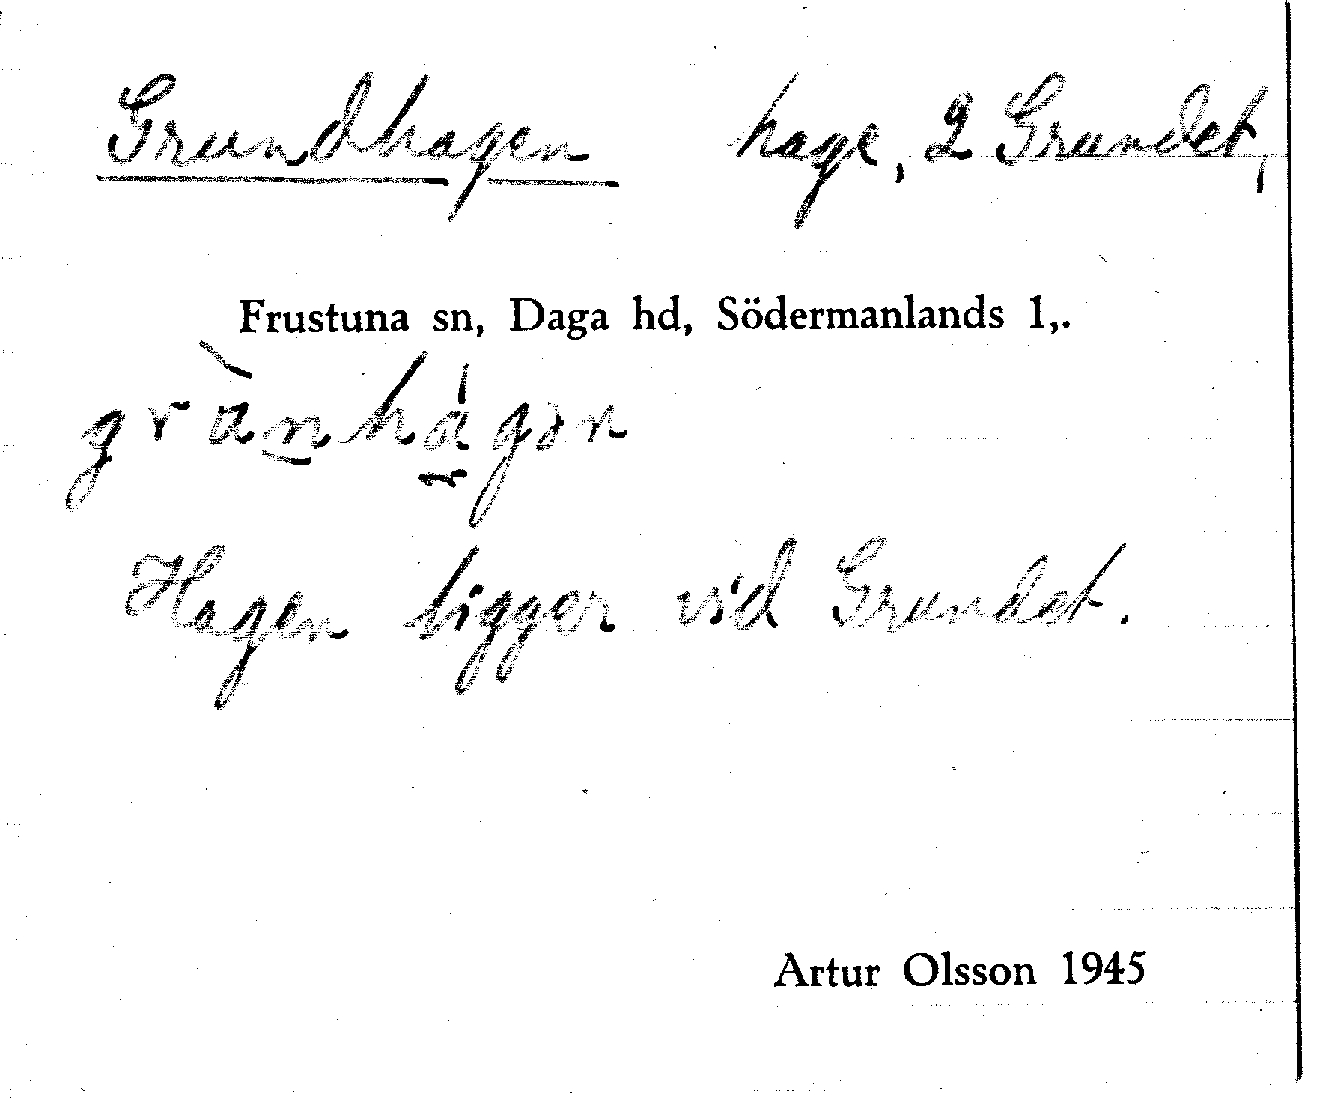 Grundhagen hage, 2 Grundet,
Frustuna sn, Daga hd, Södermanlands l,.
grànhágən
Hagen ligger vid Grundet.
Artur Olsson 1945